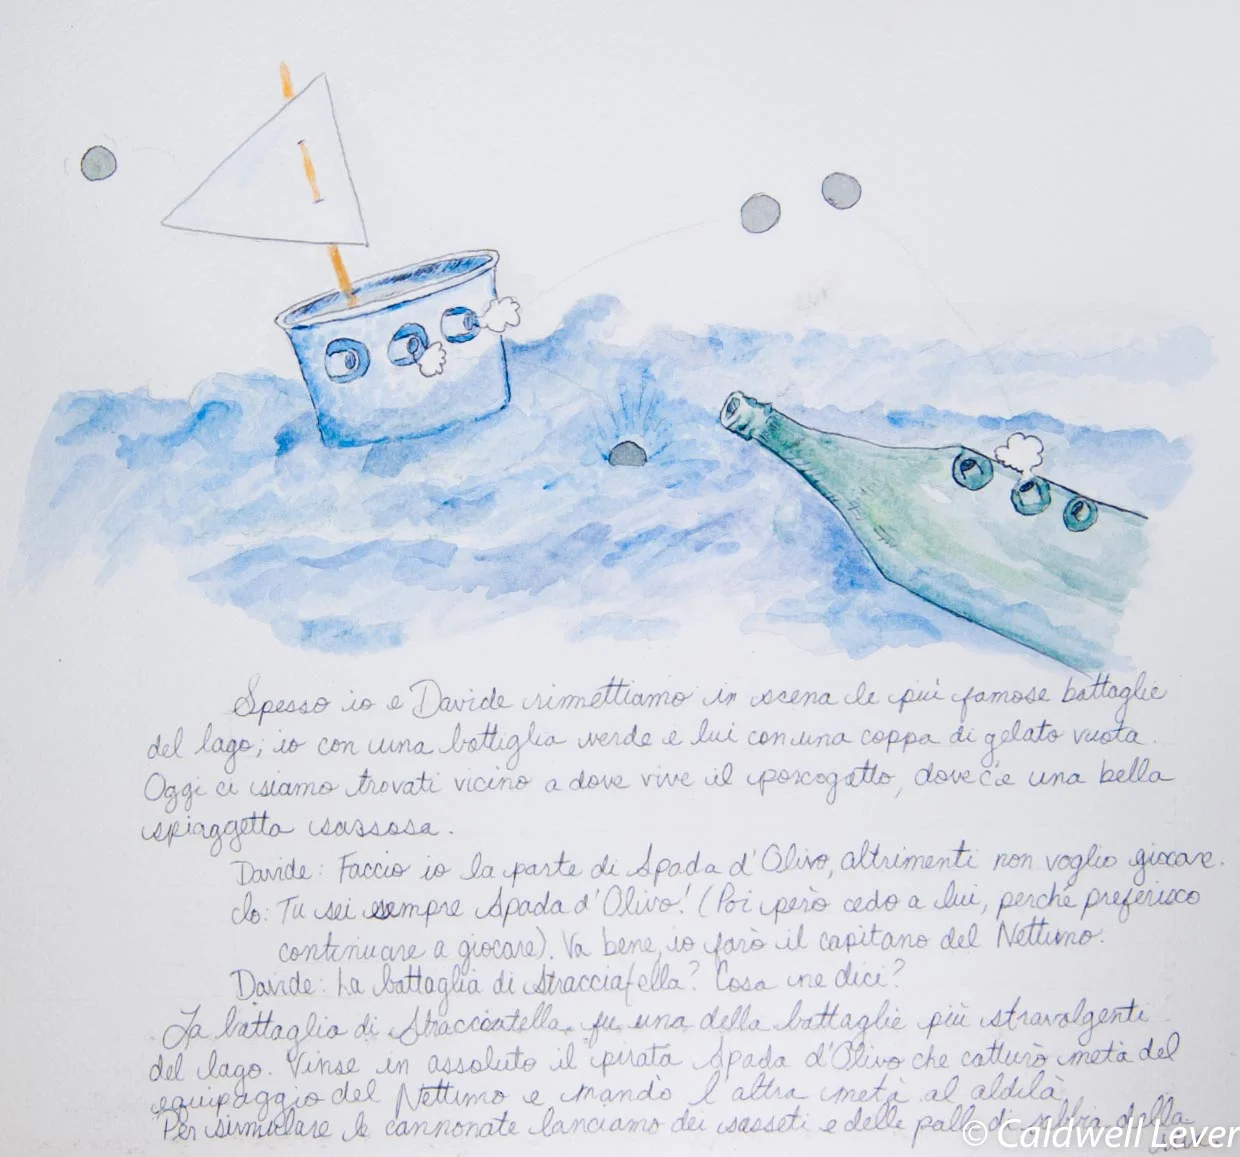 Spesso io e Davide rimettiamo in scena le più famose battaglie
del lago; io con una bottiglia verde e lui con una coppa di gelato vuota.
Oggi ci siamo trovati vicino a dove vive il porcogatto, dove c'è una bella
spiaggetta sassosa.
Davide: Faccio io la parte di Spada d'Olivo, altrimenti non voglio giocare.
Io: Tu sei sempre Spada d'Olivo! (Poi però cedo a lui, perché preferisco
continuare a giocare). Va bene, io farò il capitano del Nettuno.
Davide: La battaglia di Stracciatella? Cosa ne dici?
La battaglia di Stracciatella fu una della battaglie più stravolgenti
del lago. Vinse in assoluto il pirata Spada d'Olivo che catturò metà del
equipaggio del Nettuno e mandò l'altra metà al aldilà.
Per simulare le cannonate lanciamo dei sasseti e delle palle di sabbia dalla
© Caldwell Lever